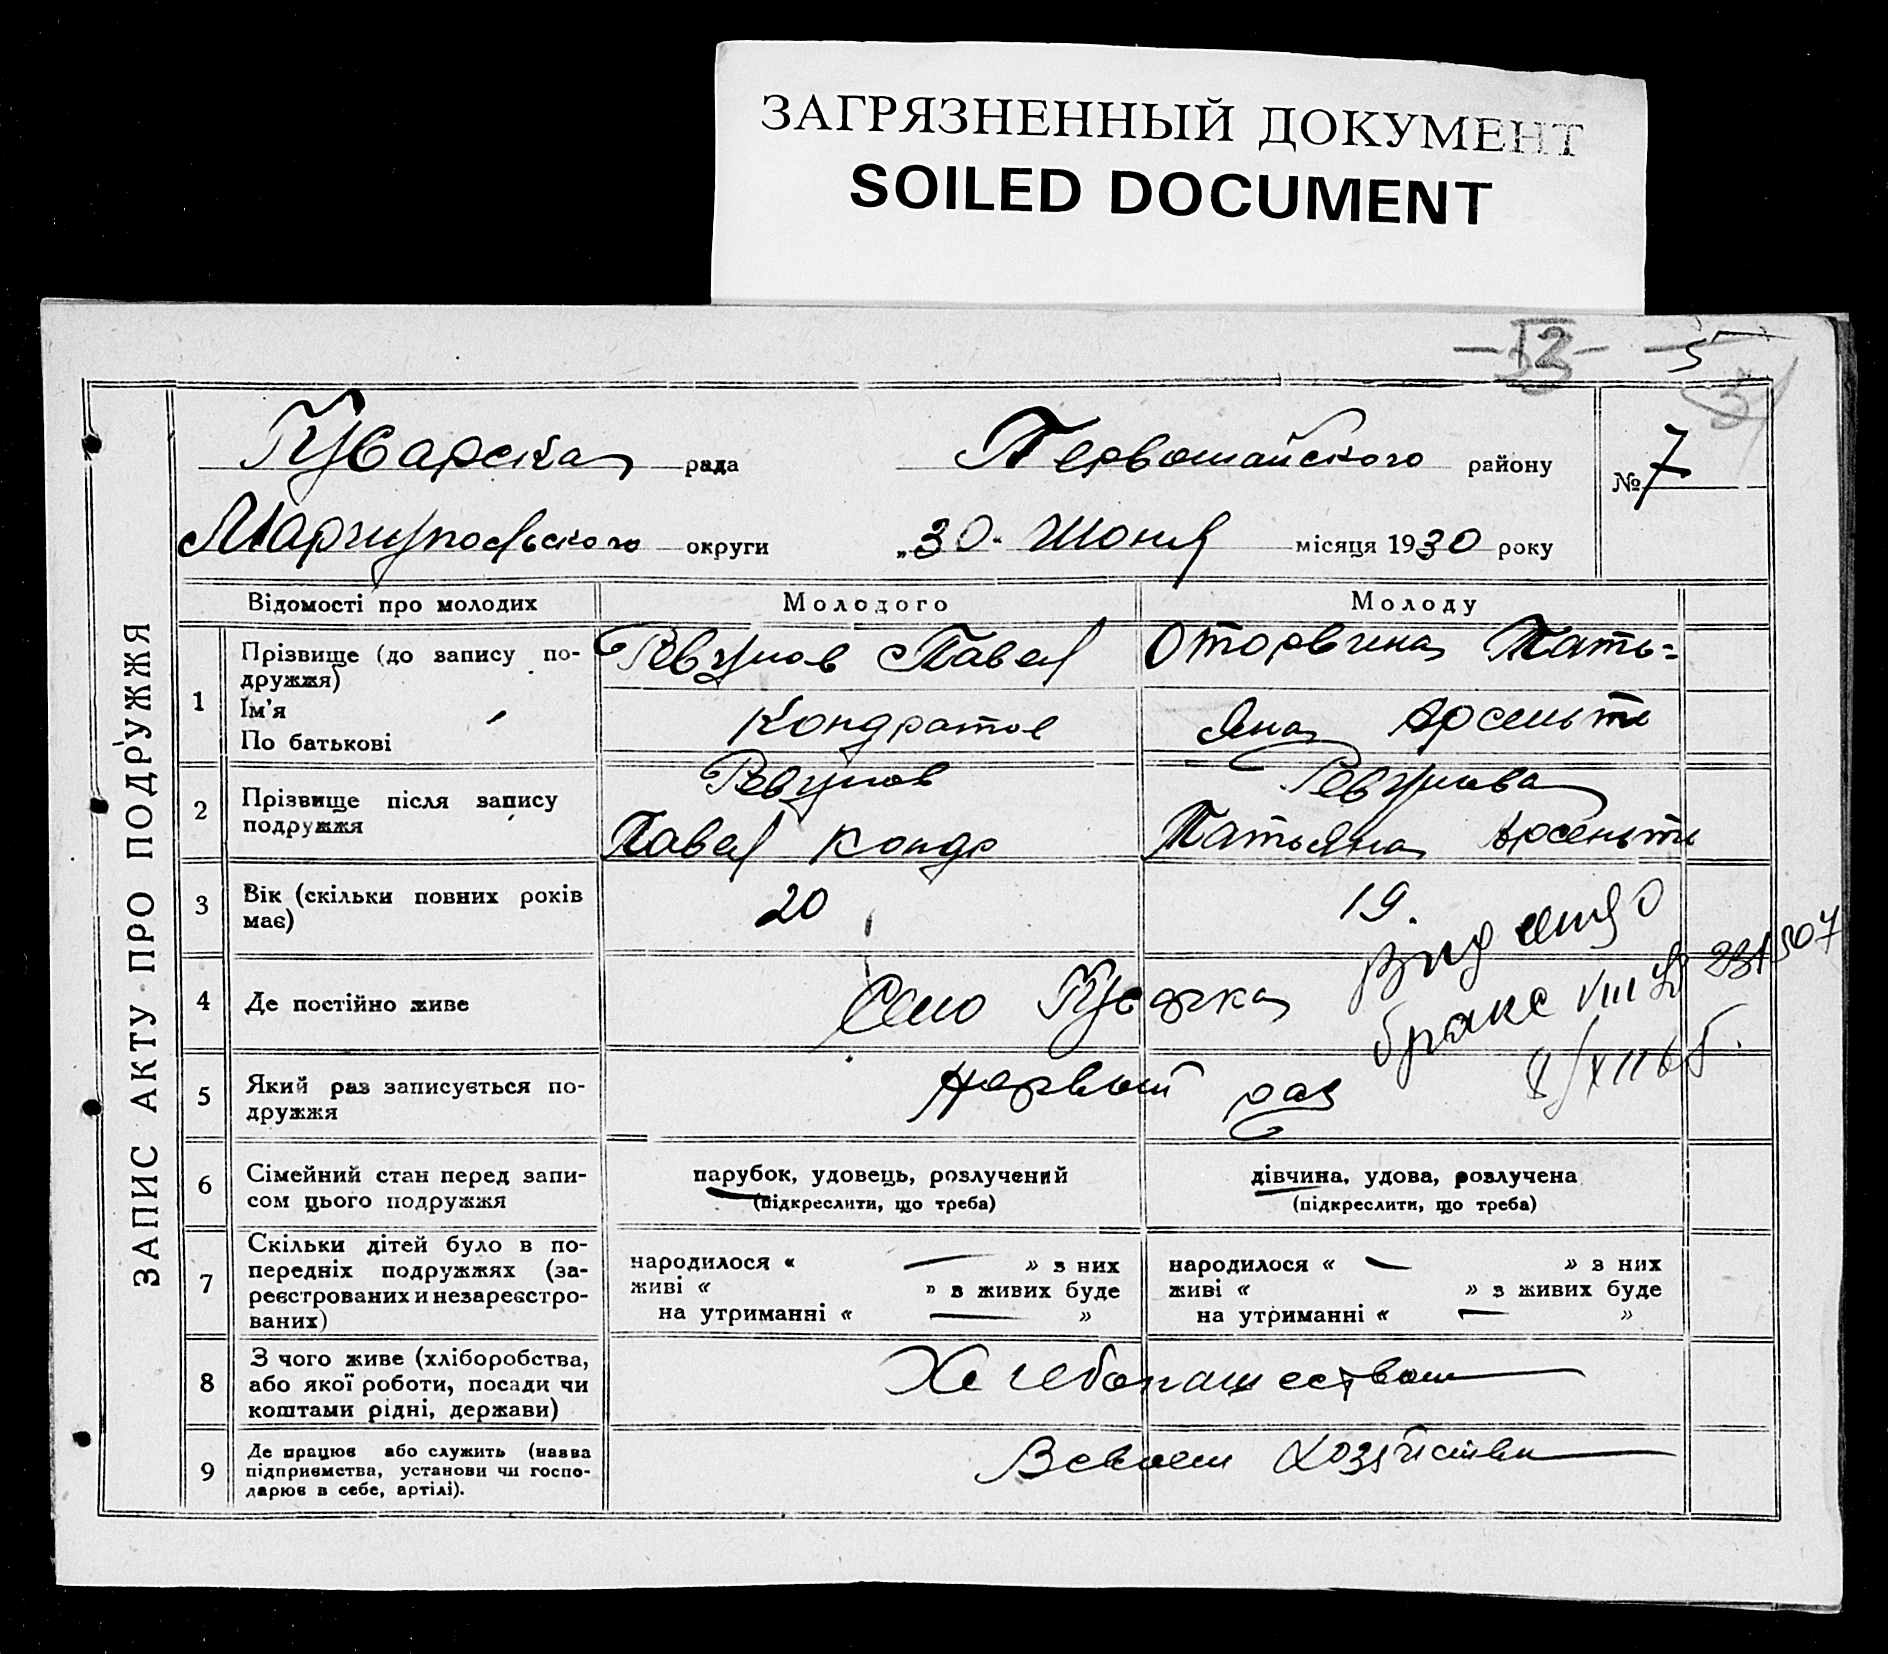 ЗАГРЯЗНЕННЫЙ ДОКУМЕНТ
SOILED DOCUMENT
5
ЗАПИС АКТУ ПРО ПОДРУЖЖЯ
рада
Первомайского району
№ 7
Мариупольского округи
„30" Июня місяця 1930 року
Відомості про молодих
Молодого
Молоду
1
Прізвище (до запису по-
дружжя)
Ім'я
По батькові
Ревунов Павел
Кондратов
Оторвина Тать=
яна Арсеньти
2
Прізвище після запису
подружжя
Ревунов
Павел Кондр
Ревунова
Татьяна Арсеньти
3
Вік (скільки повних років
має)
20
19.
4
Де постійно живе
Село
браке VIII
5
Який раз записується по-
дружжя
первый раз
6
Сімейний стан перед запи-
сом цього подружжя
парубок, удовець, розлучений
(підкреслити, що треба)
дівчина, удова, розлучена
(підкреслити, що треба)
7
Скільки дітей було в по-
передніх подружжях (за-
реєстрованих и незареєстро-
ваних)
народилося « — » з них
живі « » з живих буде
на утриманні « — »
народилося « — » з них
живі « » з живих буде
на утриманні « — »
8
З чого живе (хліборобства,
або якої роботи, посади чи
коштами рідні, держави)
Хлебопашеством
9
Де працює або служить (назва
підприємства, установи чи госпо-
дарює в себе, артілі).
В своем хозяйстви